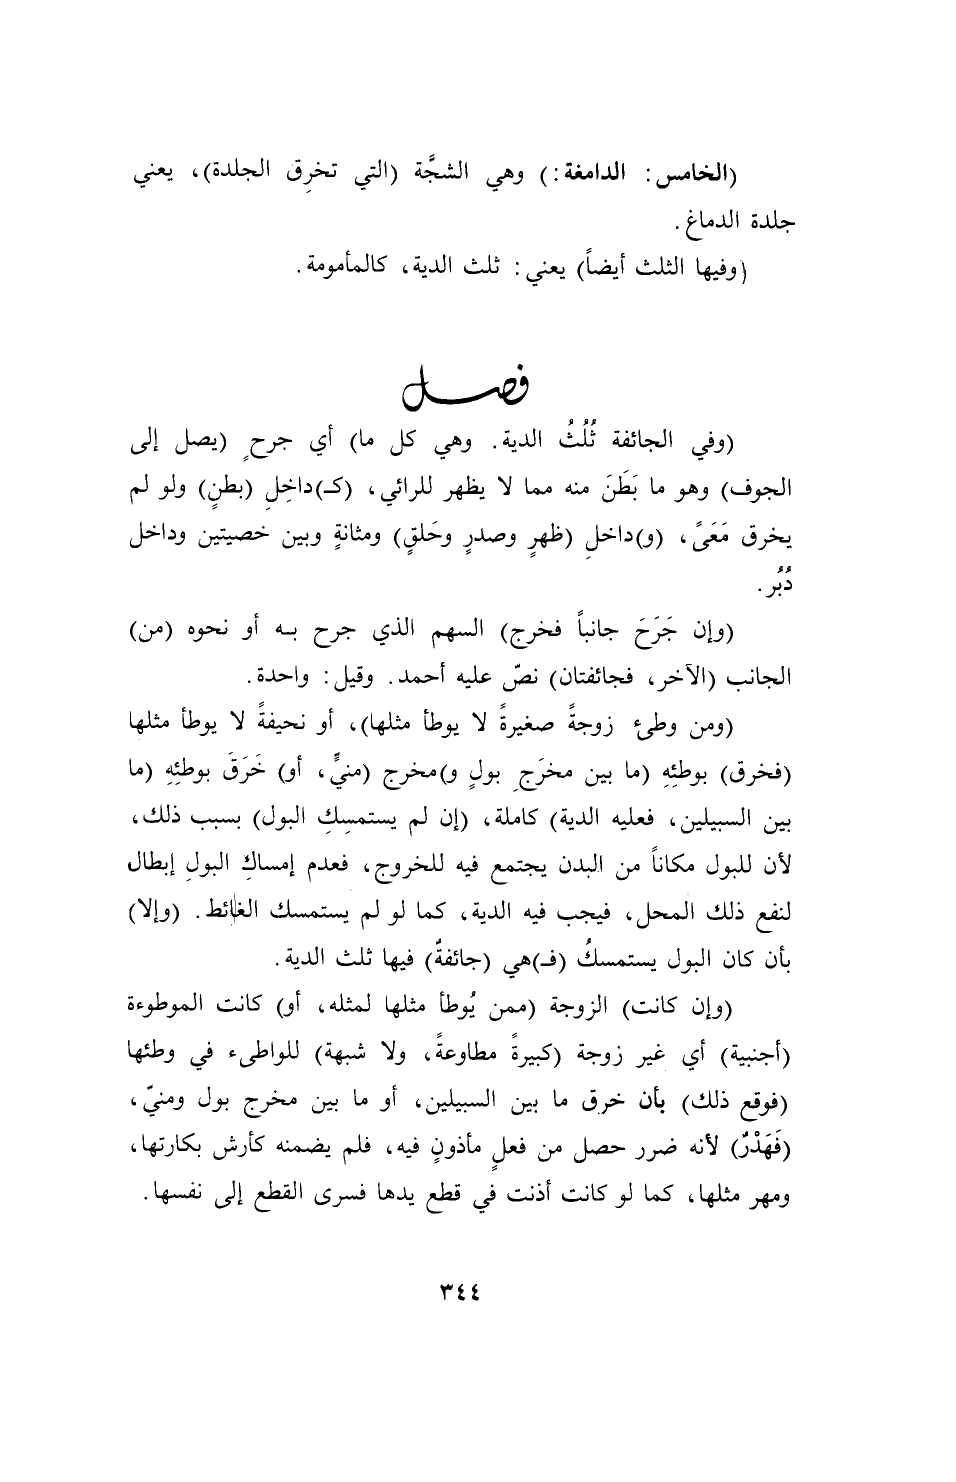 (الخامس: الدامغة:) وهي الشجَّة (التي تخرِق الجلدة)، يعني
جلدة الدماغ.
(وفيها الثلث أيضاً) يعني: ثلث الدية، كالمأمومة.
فصل
(وفي الجائفة ثُلُثُ الدية. وهي كل ما) أي جرحٍ (يصل إلى
الجوف) وهو ما بَطَنَ منه مما لا يظهر للرائي، (كـ)داخِلِ (بطنٍ) ولو لم
يخرق مَعَىً، (و)داخلِ (ظهرٍ وصدرٍ وحَلقٍ) ومثانةٍ وبين خصيتين وداخل
دُبُر.
(وإن جَرَحَ جانباً فخرج) السهم الذي جرح بـه أو نحوه (من)
الجانب (الآخر، فجائفتان) نصّ عليه أحمد. وقيل: واحدة.
(ومن وطىء زوجةً صغيرةً لا يوطأ مثلها)، أو نحيفةً لا يوطأ مثلها
(فخرق) بوطئِهِ (ما بين مخرَجِ بولٍ و)مخرج (منيٍّ، أو) خَرَقَ بوطئِهِ (ما
بين السبيلين، فعليه الدية) كاملة، (إن لم يستمسِكِ البول) بسبب ذلك،
لأن للبول مكاناً من البدن يجتمع فيه للخروج، فعدم إمساكِ البولِ إبطال
لنفع ذلك المحل، فيجب فيه الدية، كما لو لم يستمسك الغائط. (وإلا)
بأن كان البول يستمسكُ (فـ)هي (جائفةٌ) فيها ثلث الدية.
(وإن كانت) الزوجة (ممن يُوطأ مثلها لمثله، أو) كانت الموطوءة
(أجنبية) أي غير زوجة (كبيرةً مطاوعةً، ولا شبهة) للواطىء في وطئها
(فوقع ذلك) بأن خرق ما بين السبيلين، أو ما بين مخرج بول ومنيّ،
(فَهَدْرٌ) لأنه ضرر حصل من فعلٍ مأذونٍ فيه، فلم يضمنه كأرش بكارتها،
ومهر مثلها، كما لو كانت أذنت في قطع يدها فسرى القطع إلى نفسها.
٣٤٤